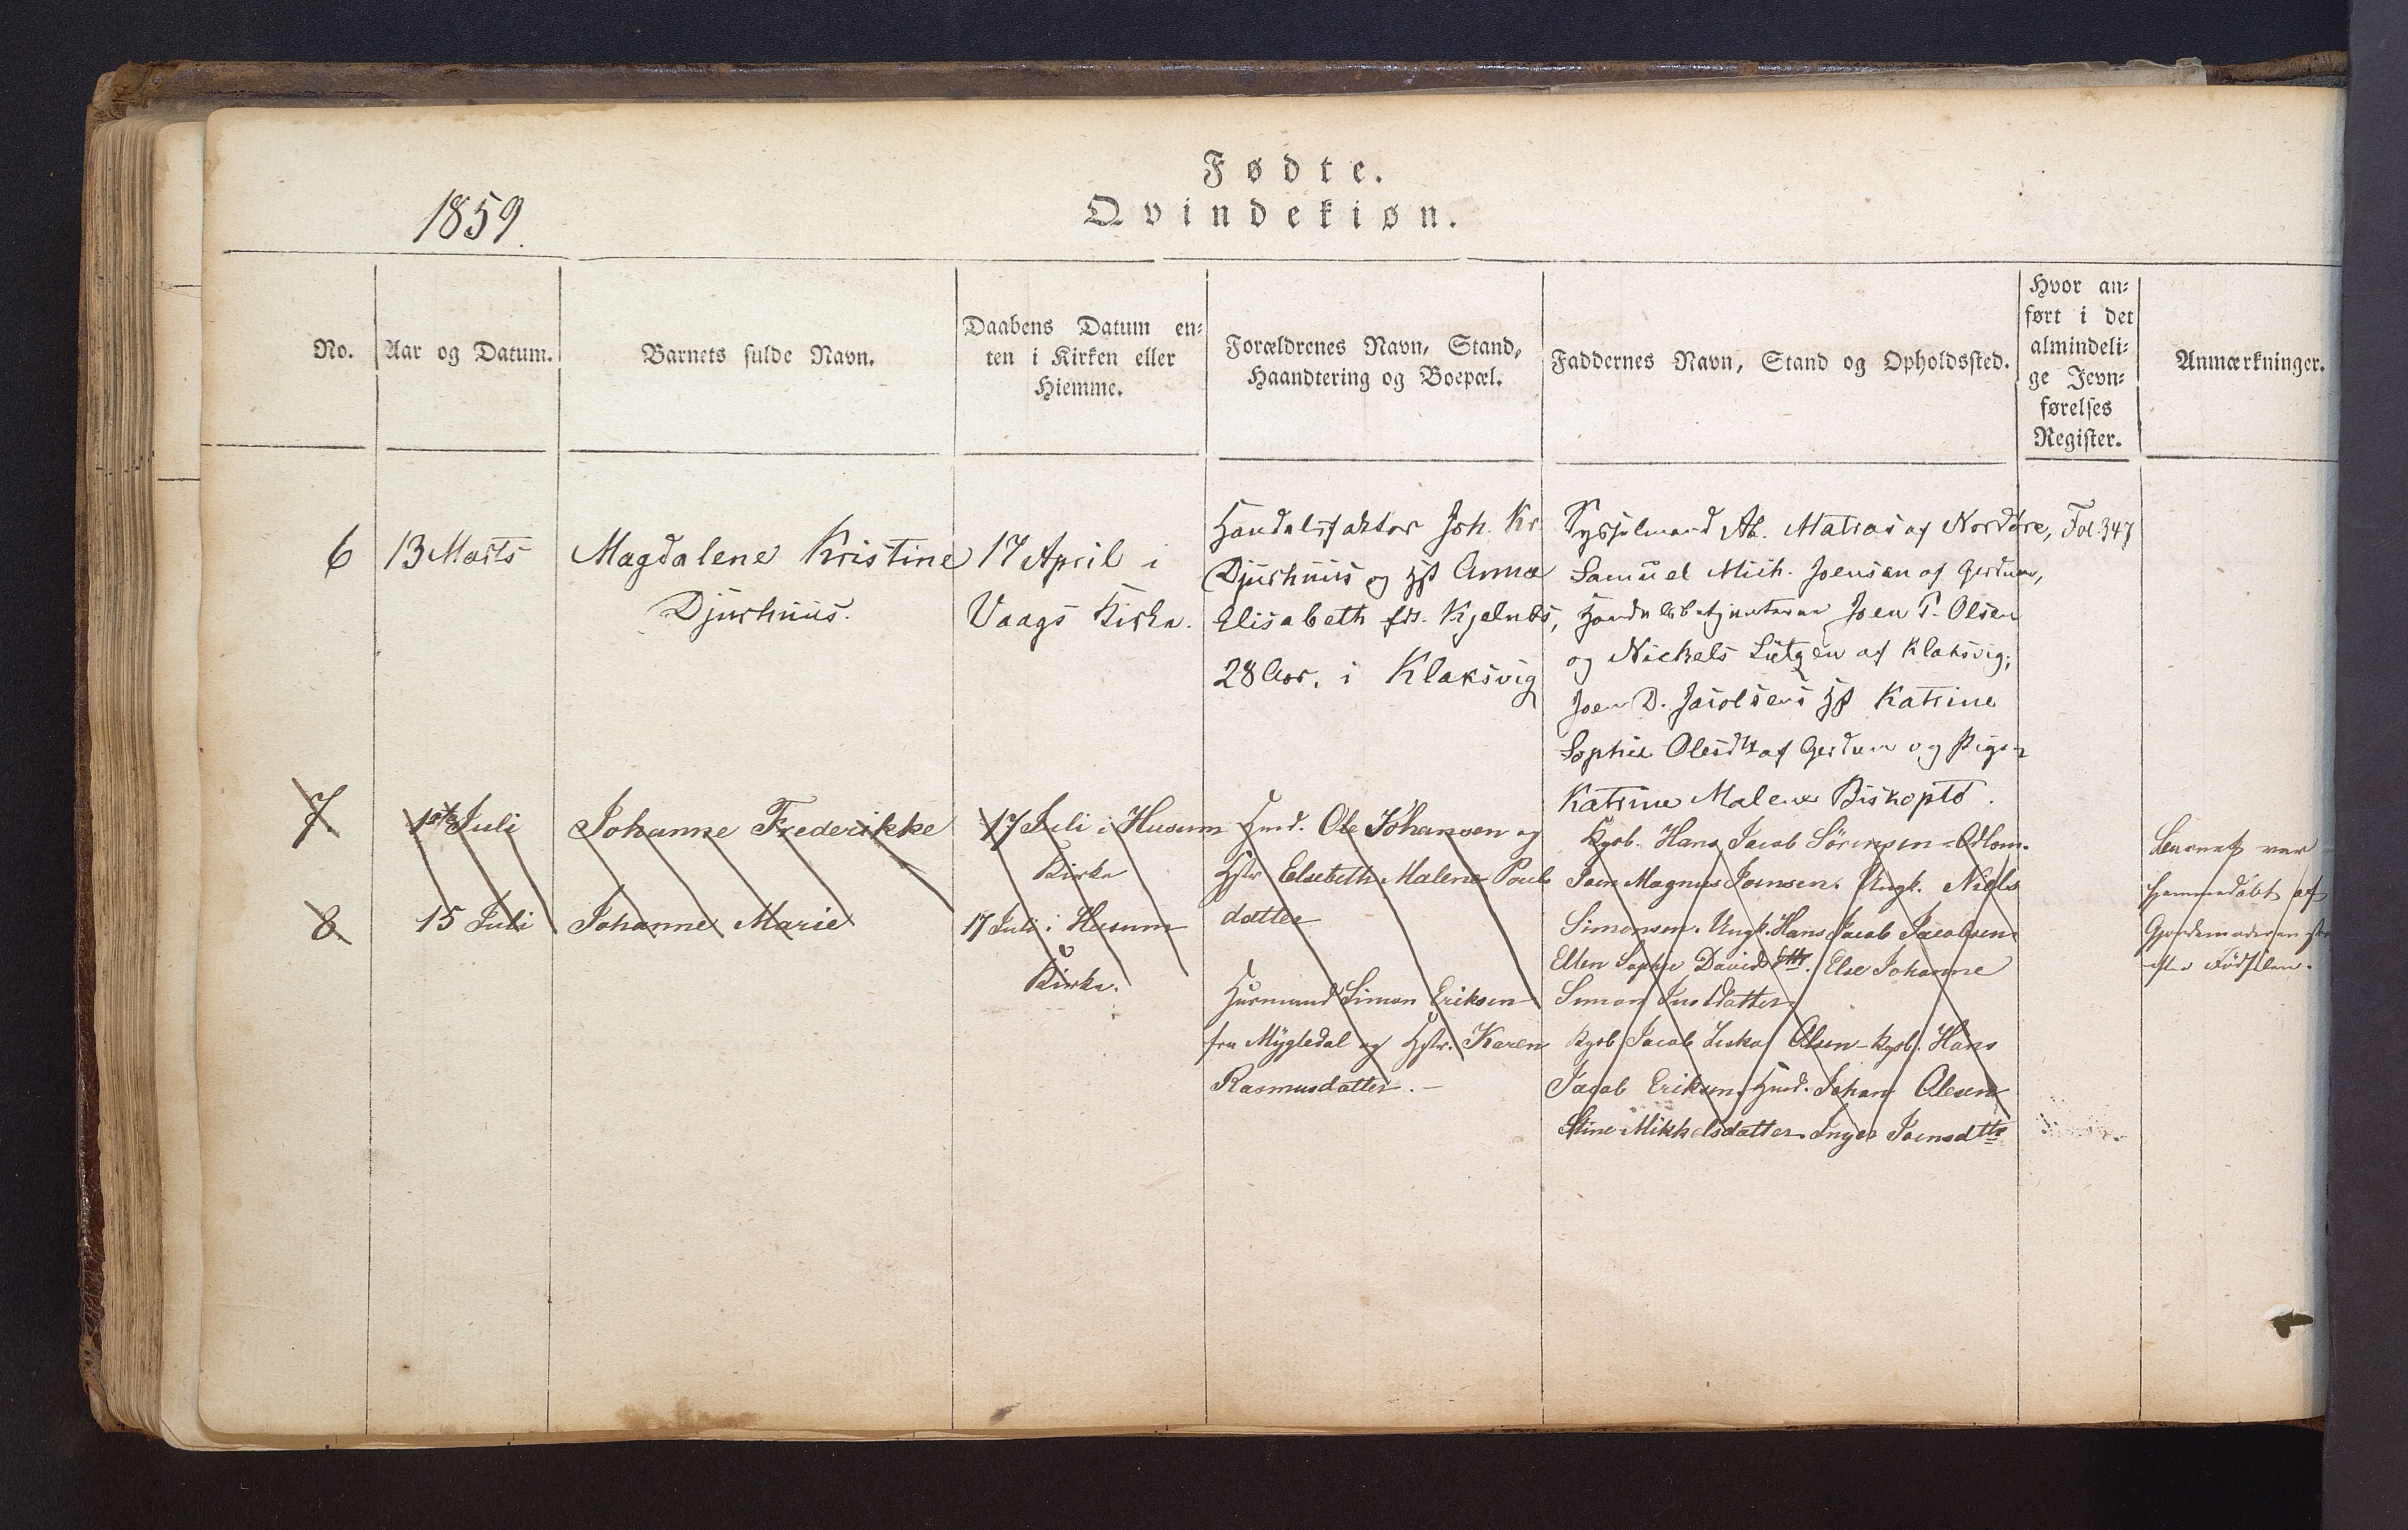 Fødte.
Qvindekiøn.
1859.
No.
Aar og Datum.
Barnets fulde Navn.
Daabens Datum en-
ten i Kirken eller
Hiemme.
Forældrenes Navn, Stand,
Haandtering og Boepæl.
Faddernes Navn, Stand og Opholdssted.
Hvor an-
ført i det
almindeli-
ge Jevn-
førelses
Register.
Anmærkninger.
6
13 Marts
Magdalene Kristine
Djurhuus.
17 April i
Vaags Kirke.
Handelsfaktor Joh. Kr.
Djurhuus og Anna
Elisabeth Kjelnæs,
28 Aar, i Klaksvig
Sysselmand Matras af Nordøre,
Samuel Mich. Joensen af Gerdum,
Joen P. Olsen
og Nickels Lützen af Klaksvig;
Joen D. Jacobsens Katrine
Sophie Olesdtr af Gerdum og Pigen
Katrine Malene Biskoptø.
Fol. 347
7.
1ste Juli
Johanne Frederikke
17 Juli i Husum
Kirke
Hmd. Ole Johansen og
Hstr Elsebeth Malene Pouls
datter
Kgsb. Hans Jacob Sørensen
Joen Magnus Joensen. Ungk. Niels
Simonsen. Ungk. Hans Jacob Jacobsen
Ellen Sophie Davidsdttr. Else Johanne
Simon datter
Barnet var
hjemmedøbt af
Gjordemoderen
efter Fødselen.
8
15 Juli
Johanne Marie
17 Juli i Husum
Kirke.
Huusmand Simon Eriksen
fra Mygledal og Hstr. Karen
Rasmusdatter. -
Kgsb Jacob Olsen - Kgsb. Hans
Jacob Eriksen. Hmd. Johan Olesen
Stine Mikkelsdatter. Inger Joensdttr